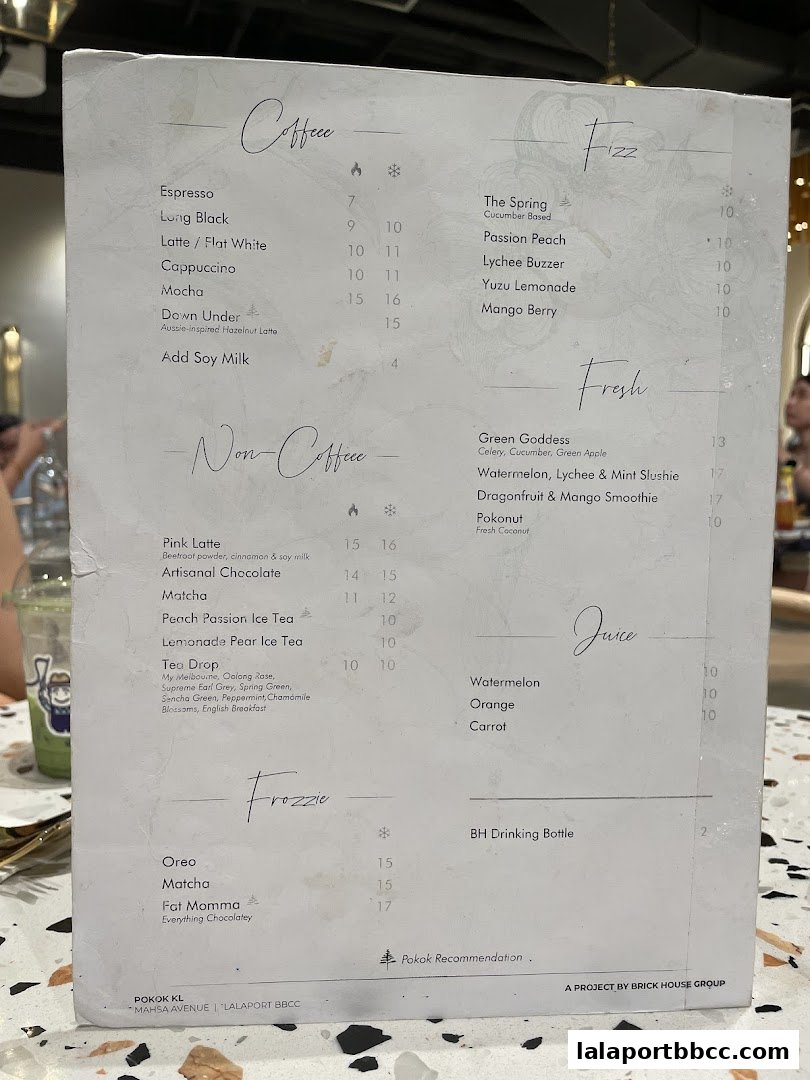 Coffeee
Espresso 7
Long Black 9 10
Latte / Flat White 10 11
Cappuccino 10 11
Mocha 15 16
Down Under 15
Aussie-inspired Hazelnut Latte
Add Soy Milk 4
Non-Coffeee
Pink Latte 15 16
Beetroot powder, cinnamon & soy milk
Artisanal Chocolate 14 15
Matcha 11 12
Peach Passion Ice Tea 10
Lemonade Pear Ice Tea 10
Tea Drop 10 10
My Melbourne, Oolong Rose,
Supreme Earl Grey, Spring Green,
Sencha Green, Peppermint,Chamomile
Blossoms, English Breakfast
Frozzie
Oreo 15
Matcha 15
Fat Momma 17
Everything Chocolatey
Fizz
The Spring 10
Cucumber Based
Passion Peach 10
Lychee Buzzer 10
Yuzu Lemonade 10
Mango Berry 10
Fresh
Green Goddess 13
Celery, Cucumber, Green Apple
Watermelon, Lychee & Mint Slushie 17
Dragonfruit & Mango Smoothie 17
Pokonut 10
Fresh Coconut
Juice
Watermelon 10
Orange 10
Carrot 10
BH Drinking Bottle 2
Pokok Recommendation
POKOK KL
MAHSA AVENUE | LALAPORT BBCC
A PROJECT BY BRICK HOUSE GROUP
lalaportbbcc.com